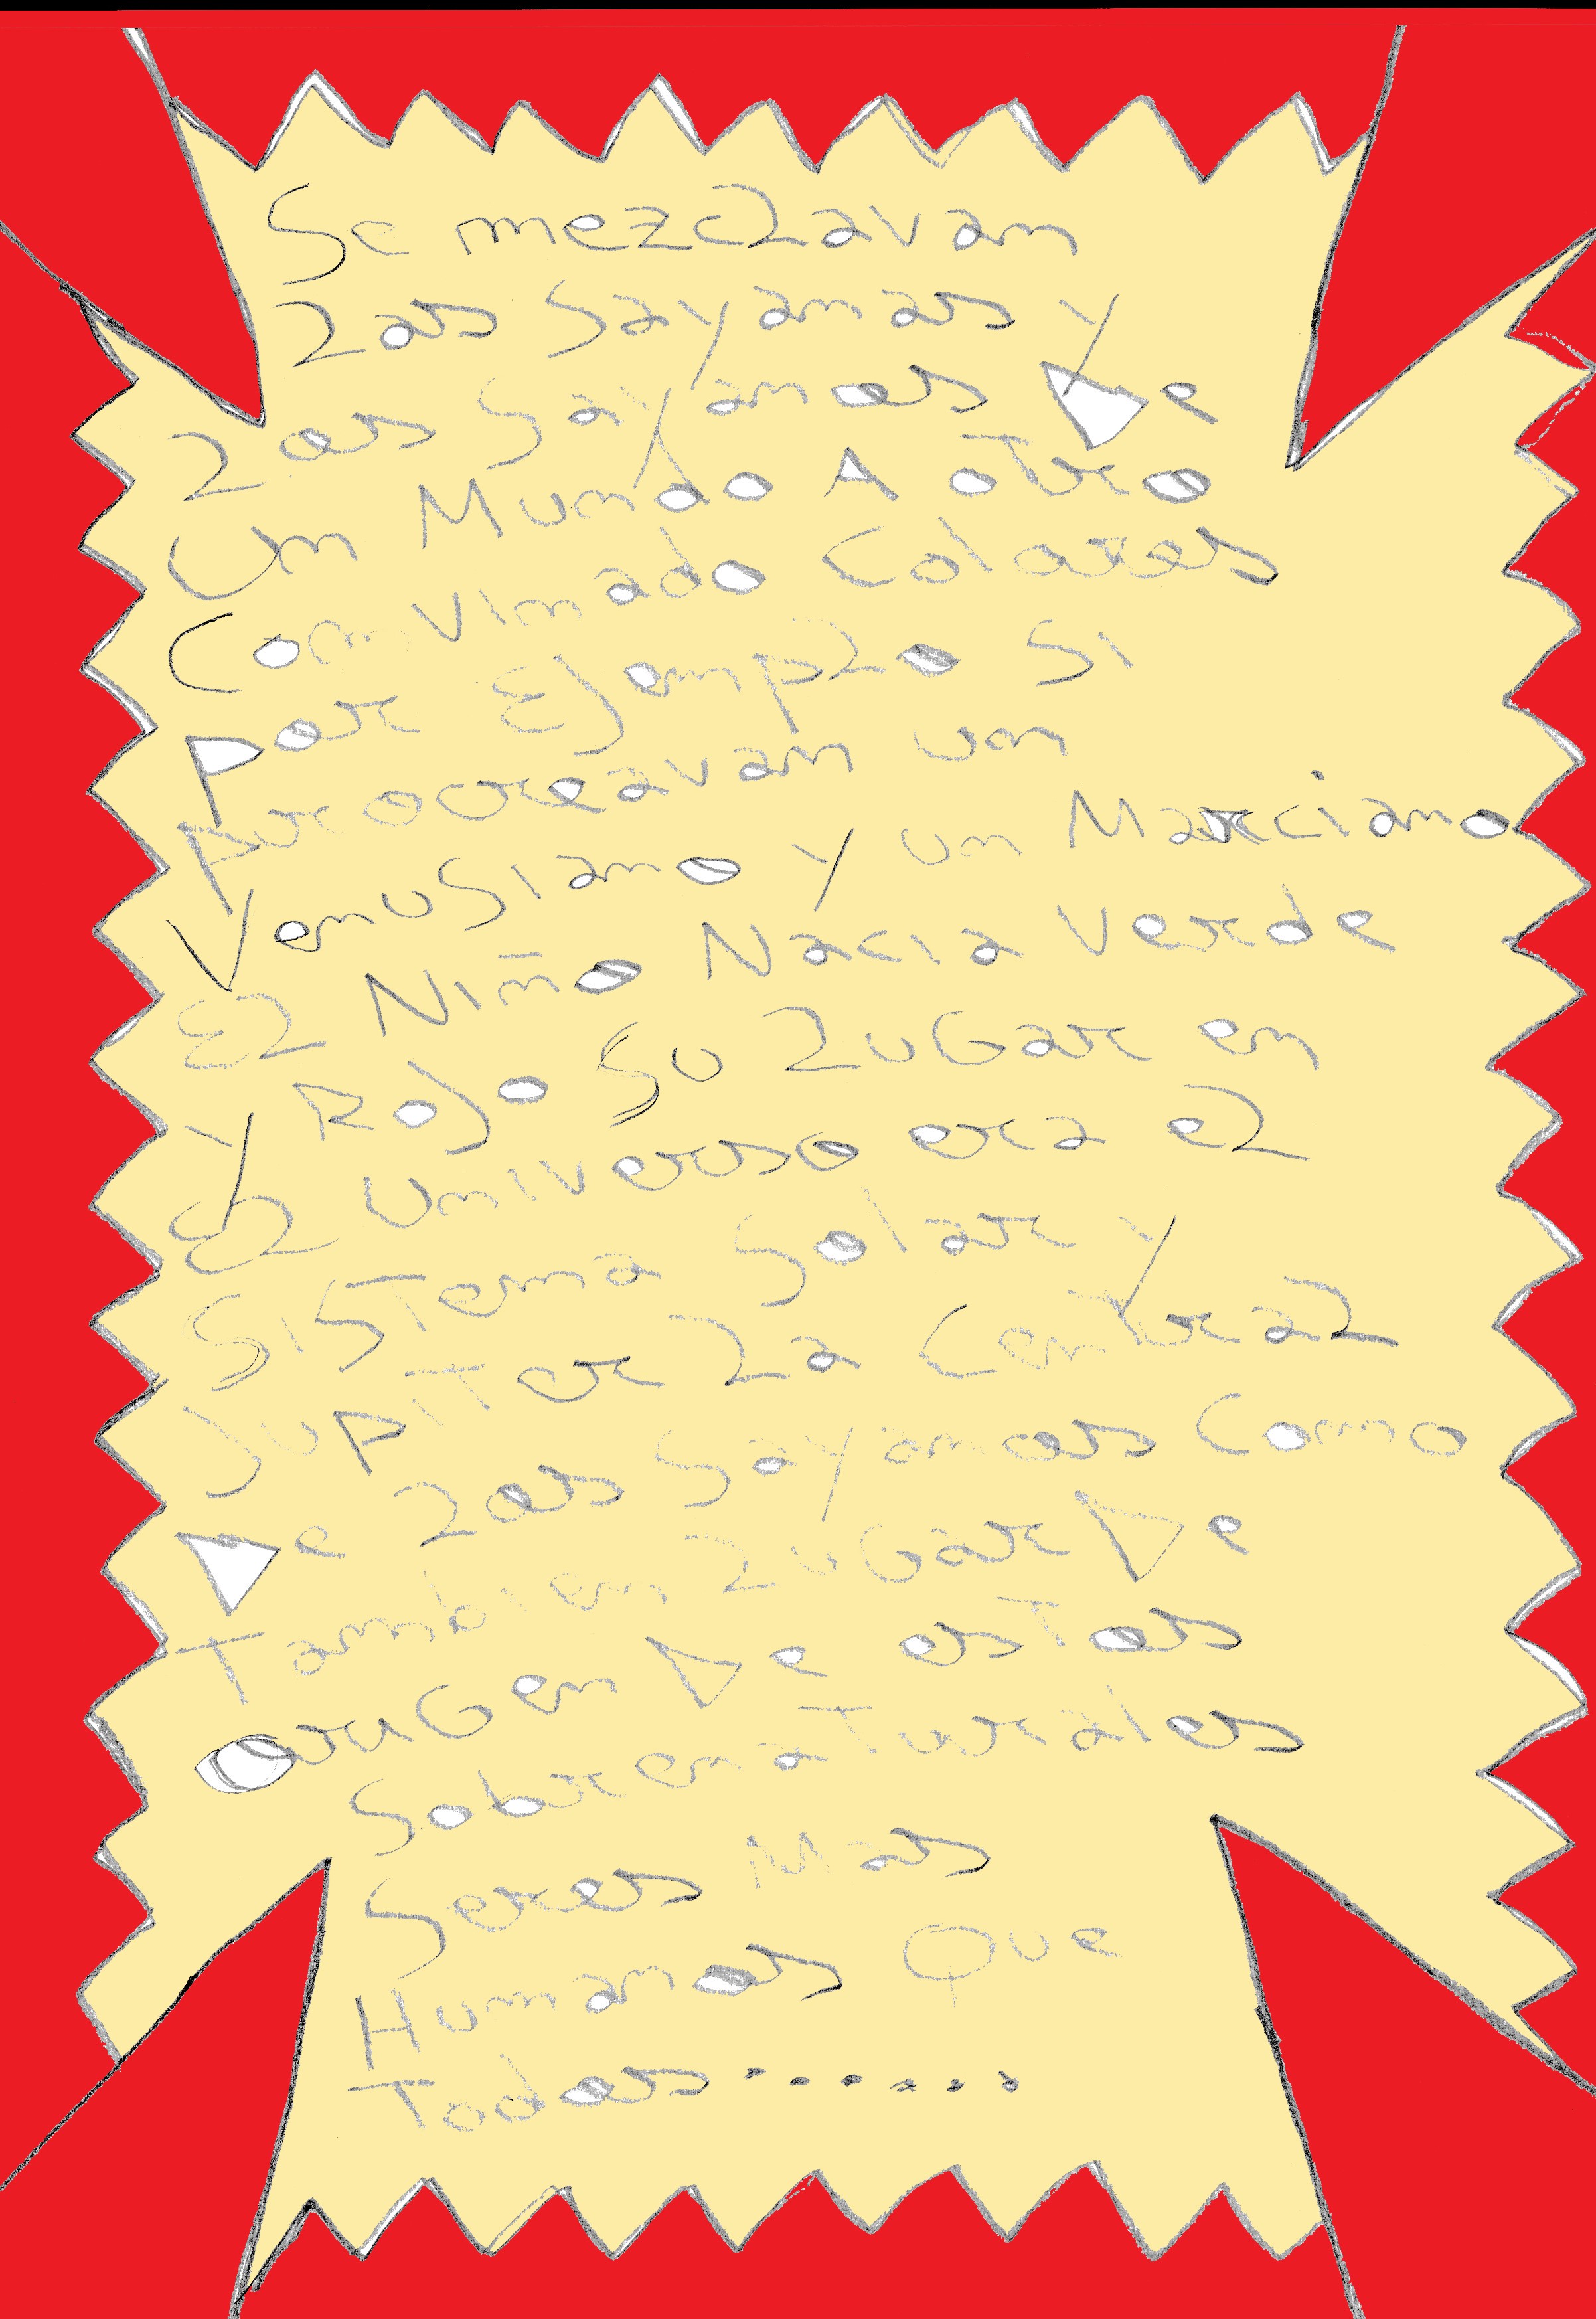 Se mezclavan
las Sayanas y
los Sayanos De
Un Mundo A otro
Convinado Colores
por Ejemplo Si
procreavan un
Venusiano y un Marciano
El Niño Nacia verde
y Rojo Su lugar en
El universo era el
Sistema Solar y
Jupiter la Central
De los Sayanos Como
Tambien lugar De
Origen De estos
Sobrenaturales
Seres Mas
Humanos Que
Todos.......